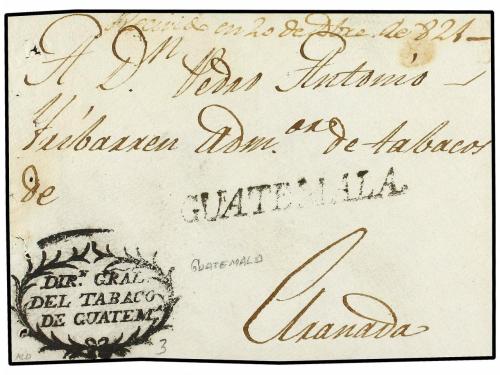 Recivido en 20 de Dbre. de 821 –
A Dn Pedro Antonio
Yribarren Admor. de tabacos
de
GUATEMALA.
GUATEMALA
Granada
DIR.N GRAL
DEL TABACO
DE GUATEM.
3